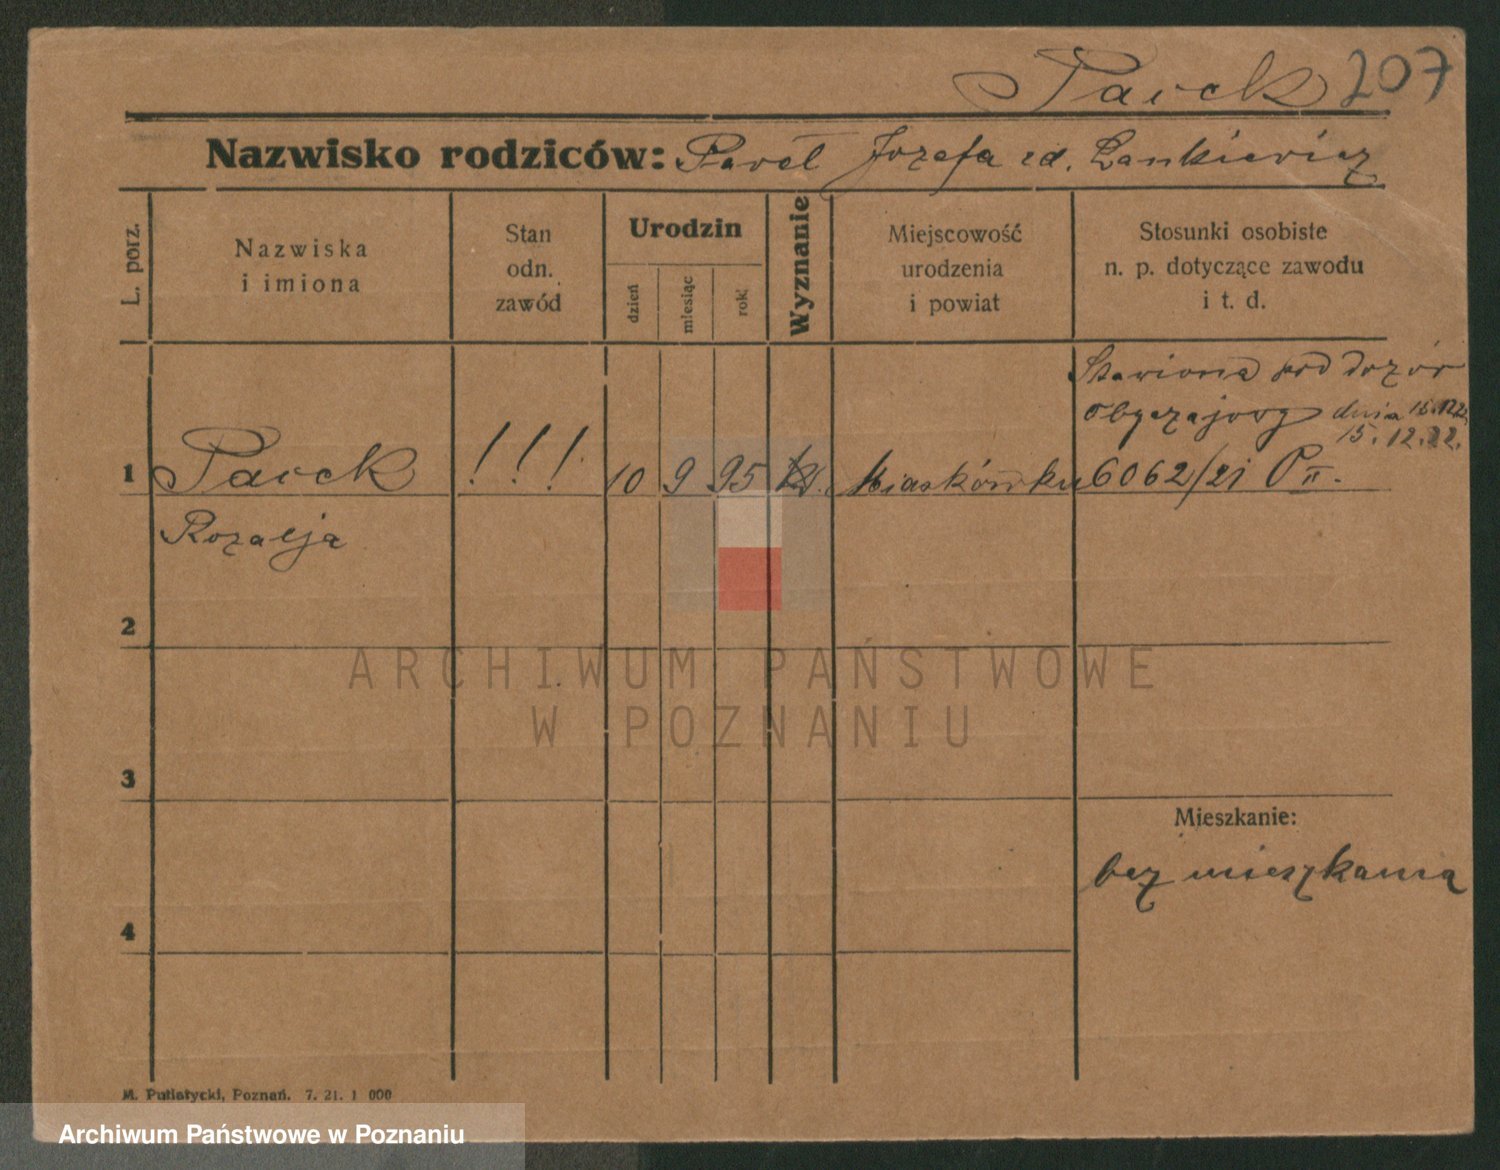 Pacek 207
Nazwisko rodziców: Paweł Józefa zd. Lankiewicz
L. porz.
Nazwiska
i imiona
Stan
odn.
zawód
Urodzin
dzień
miesiąc
rok
Wyznanie
Miejscowość
urodzenia
i powiat
Stosunki osobiste
n. p. dotyczące zawodu
i t. d.
Stawiona pod dozór
obyczajowy dnia 15.12.22
15.12.22.
1 Pacek !!! 10 9 95 kt. Miaskówku 6062/21 P II.
Rozalja
2
3
Mieszkanie:
bez mieszkania
4
ARCHIWUM PAŃSTWOWE
W POZNANIU
M. Putiatycki, Poznań. 7. 21. 1 000
Archiwum Państwowe w Poznaniu